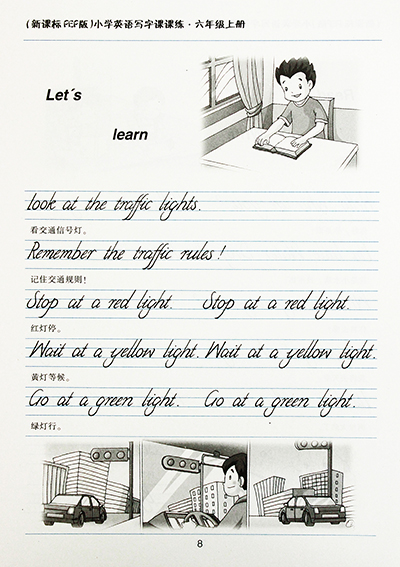 (新课标PEP版)小学英语写字课课练·六年级上册
Let's
learn
Look at the traffic lights.
看交通信号灯。
Remember the traffic rules!
记住交通规则!
Stop at a red light. Stop at a red light.
红灯停。
Wait at a yellow light. Wait at a yellow light.
黄灯等候。
Go at a green light. Go at a green light.
绿灯行。
8